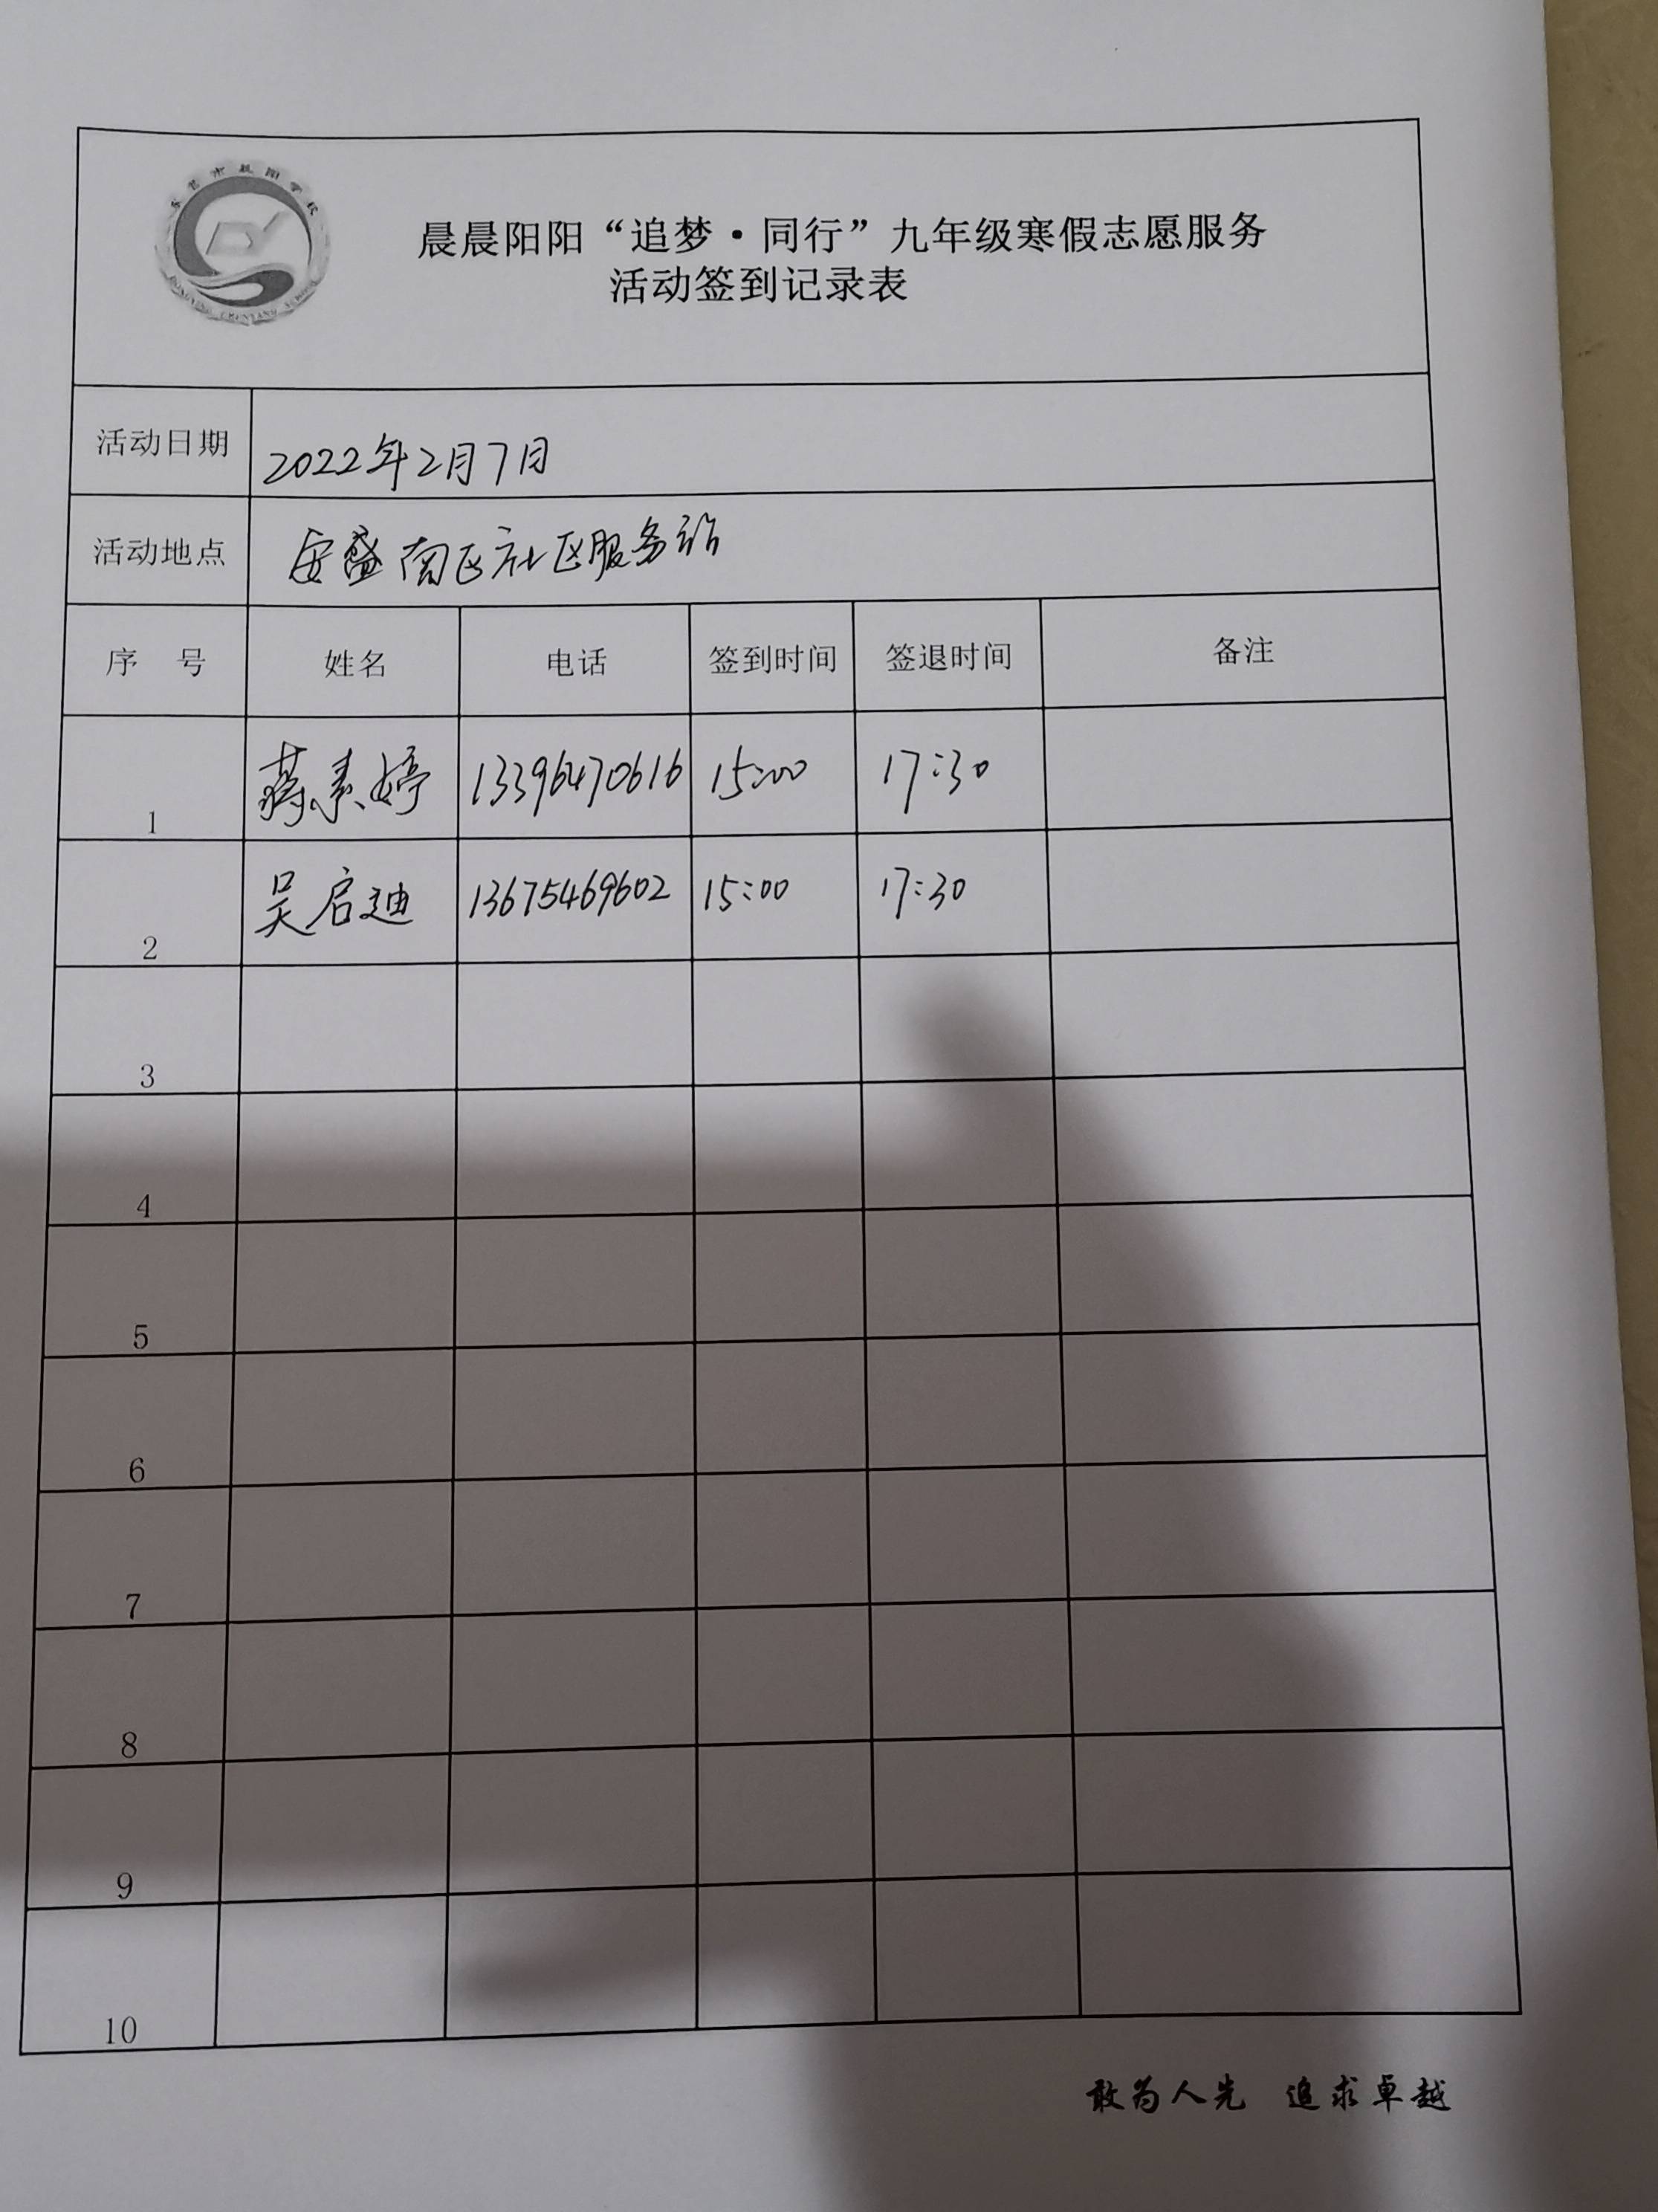 东营市晨阳学校
DONGYING CHENYANG SCHOOL
晨晨阳阳“追梦·同行”九年级寒假志愿服务
活动签到记录表
活动日期 2022年2月7日
活动地点 安盛南区社区服务站
序 号 姓名 电话 签到时间 签退时间 备注
1 蒋素婷 13396470616 15:00 17:30
2 吴启迪 13675469602 15:00 17:30
3
4
5
6
7
8
9
10
敢为人先 追求卓越